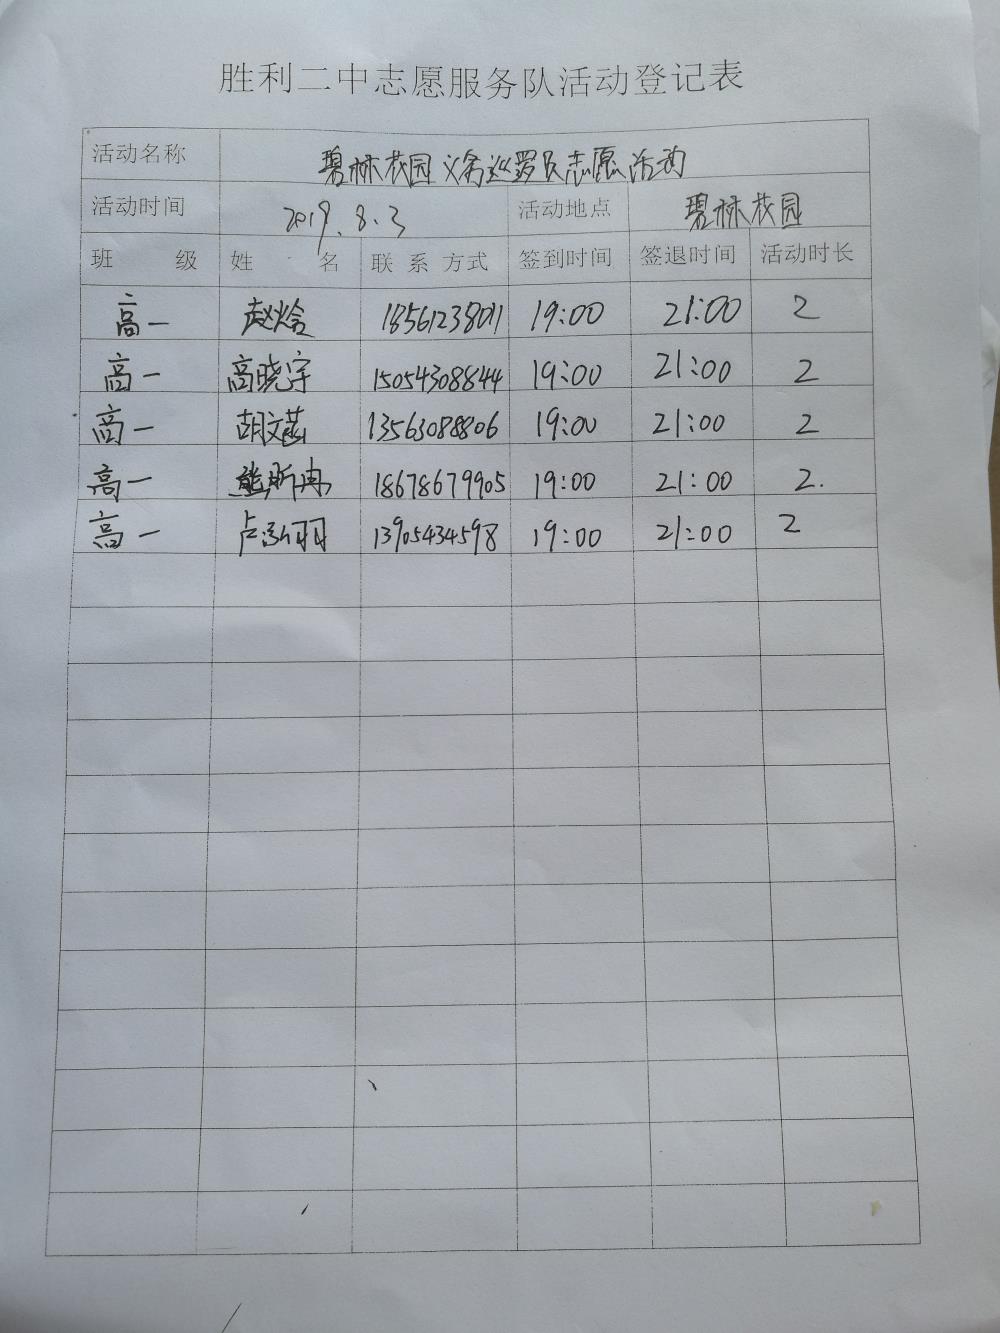 胜利二中志愿服务队活动登记表
活动名称 碧林花园义务巡逻员志愿活动
活动时间 2019.8.3 活动地点 碧林花园
班 级 姓 名 联 系 方式 签到时间 签退时间 活动时长
高一 赵烩 18561238011 19:00 21:00 2
高一 高晓宇 15054308844 19:00 21:00 2
高一 胡文茜 13563088806 19:00 21:00 2
高一 熊昕冉 18678679905 19:00 21:00 2.
高一 卢泓羽 13905434598 19:00 21:00 2